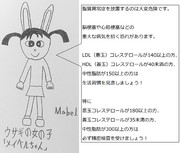 脂質異常症を放置するのは大変危険です。
脳梗塞や心筋梗塞などの
重大な病気を招く恐れがあります。
LDL（悪玉）コレステロールが140以上の方、
HDL（善玉）コレステロールが40未満の方、
中性脂肪が150以上の方は
生活習慣を見直しましょう！
特に
悪玉コレステロールが180以上の方、
善玉コレステロールが35未満の方、
中性脂肪が300以上の方は
必ず精密検査を受けましょう！
Mabel
ウサギの女の子
「メイベルちゃん」